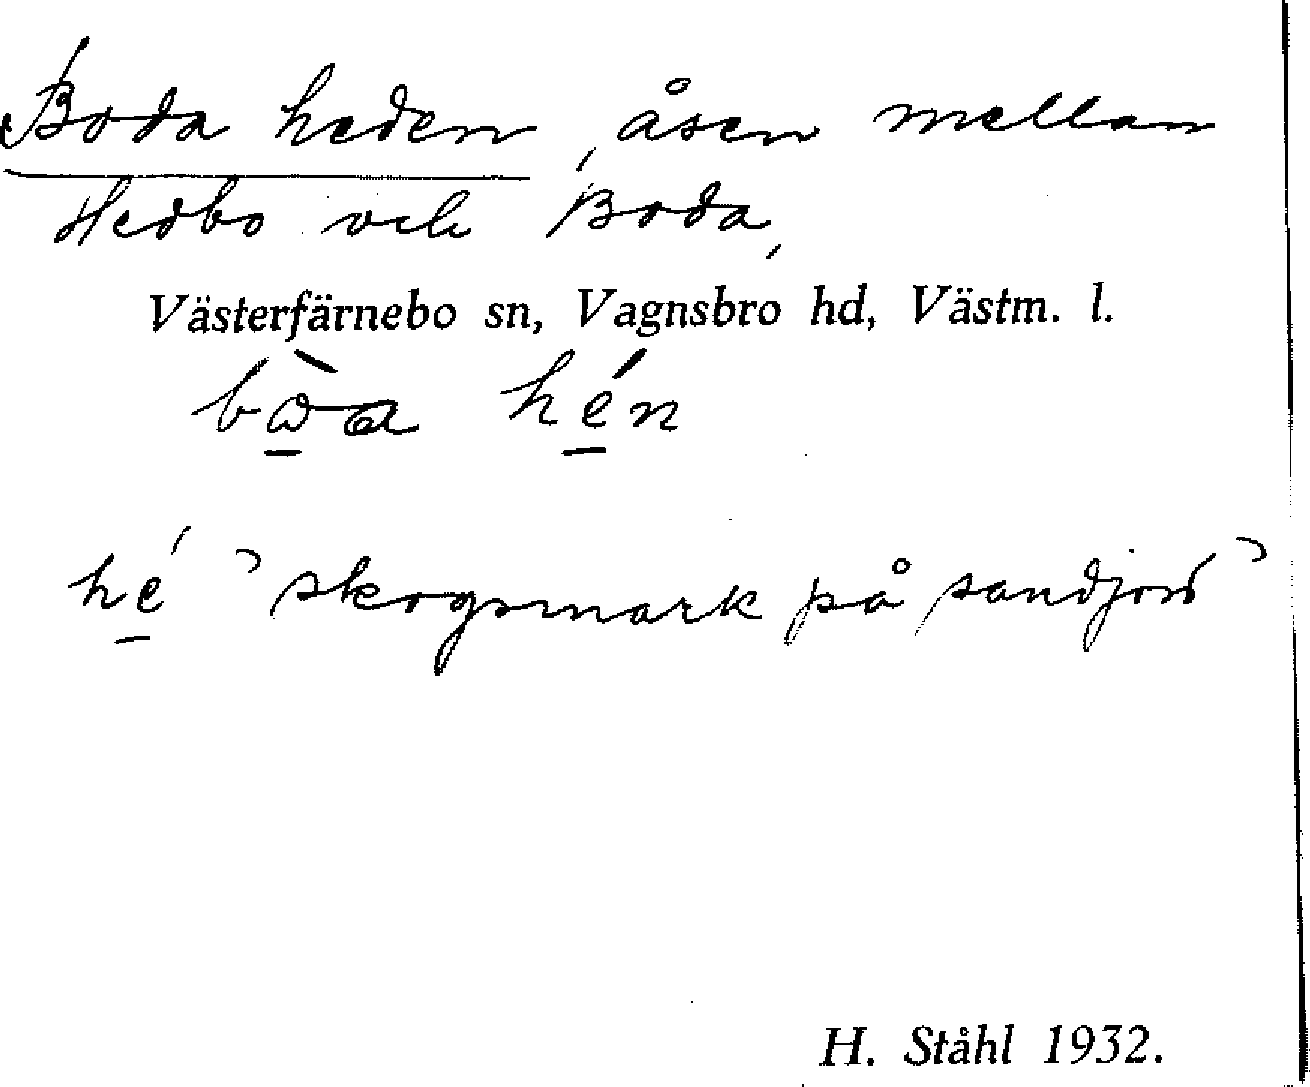 Boda heden, åsen mellan
Hedbo och Boda,
Västerfärnebo sn, Vagnsbro hd, Västm. l.
bὼ̱a hé̱n
hé̱ ’skogsmark på sandjord’
H. Ståhl 1932.